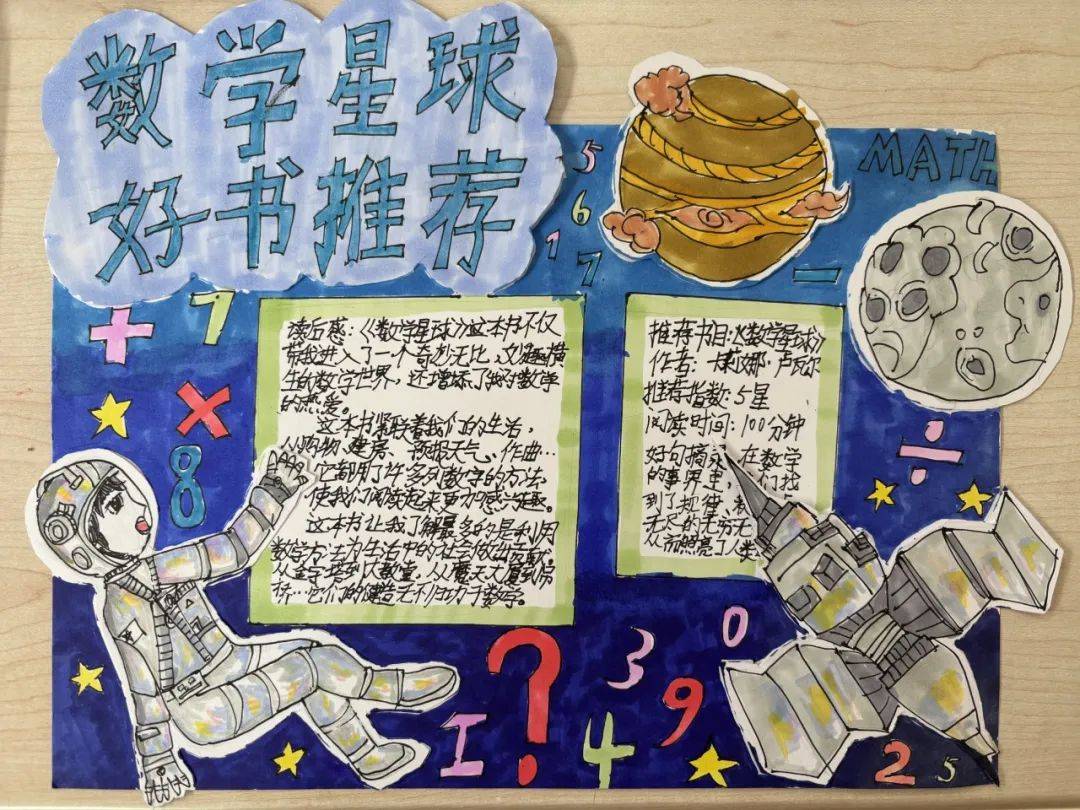 数学星球
好书推荐
MATH
5
6
1
7
-
+
7
×
8
÷
读后感：《数学星球》这本书不仅
带我进入了一个奇妙无比、又趣横
生的数学世界，还增添了我对数学
的热爱。
这本书紧联着我们的生活，
从购物、建房、预报天气、作曲…
它都用了许多列数字的方法，
使我们阅读起来更加感兴趣。
这本书让我了解最多的是利用
数学方法为生活中的社会做出贡献
从金字塔到大教堂，从摩天大厦到吊
桥…它们的建造无不归功于数学。
推荐书目：《数学星球》
作者：娜·卢瓦尔
推荐指数：5星
阅读时间：100分钟
好句摘录：在数学
的世界里，们找
到了规律，
无尽的无穷无
从而照亮了人类
0
3
9
?
I
4
2
5